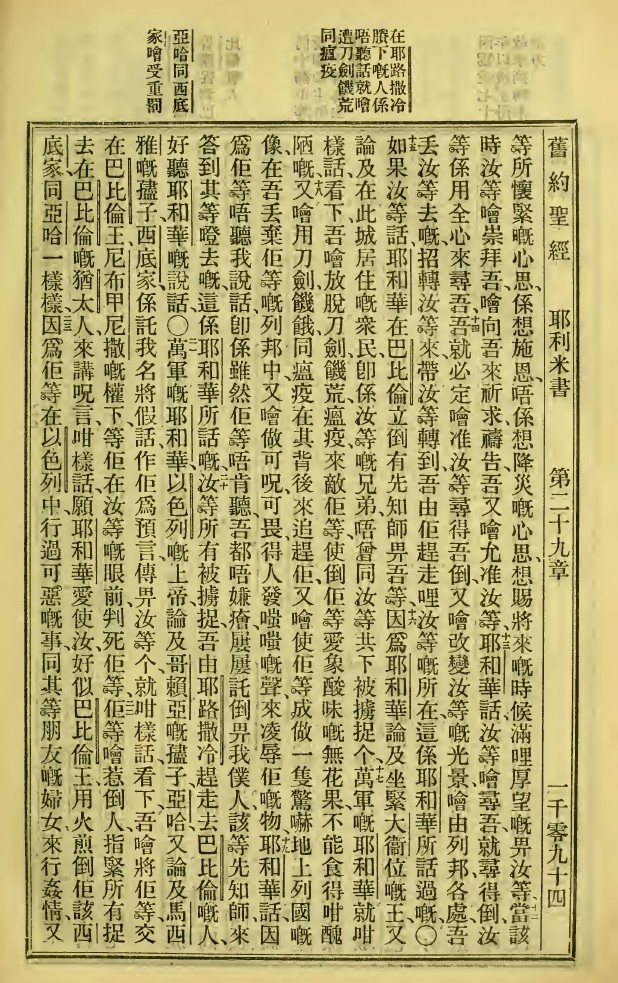 在耶路撒冷
賸下嘅人係
唔聽話就噲
遭刀劍饑荒
同瘟疫
亞哈同西底
家噲受重罰
舊約聖經 耶利米書 第二十九章 一千零九十四
等所懷緊嘅心思係想施恩唔係想降災嘅心思想賜將來嘅時候滿哩厚望嘅畀汝等十二當該
時汝等噲崇拜吾噲向吾來祈求禱告吾又噲允准汝等十三耶和華話汝等噲尋吾就尋得倒汝
等係用全心來尋吾十四吾就必定噲准汝等尋得吾倒又噲改變汝等嘅光景噲由列邦各處吾
丟汝等去嘅招轉汝等來帶汝等轉到吾由佢趕走哩汝等嘅所在這係耶和華所話過嘅〇
十五如果汝等話耶和華在巴比倫立倒有先知師畀吾等十六因爲耶和華論及坐緊大衞位嘅王又
論及在此城居住嘅衆民卽係汝等嘅兄弟唔曾同汝等共下被擄捉个十七萬軍嘅耶和華就咁
樣話看下吾噲放脫刀劍饑荒瘟疫來敵佢等使倒佢等愛象酸味嘅無花果不能食得咁醜
陋嘅十八又噲用刀劍饑餓同瘟疫在其背後來追趕佢又噲使佢等成做一隻驚嚇地上列國嘅
像在吾丟棄佢等嘅列邦中又噲做可呪可畏得人發嗤嗤嘅聲來凌辱佢嘅物十九耶和華話因
爲佢等唔聽我說話卽係雖然佢等唔肯聽吾都唔嫌癐屢屢託倒畀我僕人該等先知師來
答到其等噔去嘅這係耶和華所話嘅二十汝等所有被擄捉吾由耶路撒冷趕走去巴比倫嘅人
好聽耶和華嘅說話〇二一萬軍嘅耶和華以色列嘅上帝論及哥賴亞嘅孻子亞哈又論及馬西
雅嘅孻子西底家係託我名將假話作佢爲預言傳畀汝等个就咁樣話看下吾噲將佢等交
在巴比倫王尼布甲尼撒嘅權下等佢在汝等嘅眼前判死佢等二二佢等噲惹倒人指緊所有捉
去在巴比倫嘅猶太人來講呪言咁樣話願耶和華愛使汝好似巴比倫王用火煎倒佢該西
底家同亞哈一樣樣二三因爲佢等在以色列中行過可惡嘅事同其等朋友嘅婦女來行姦情又